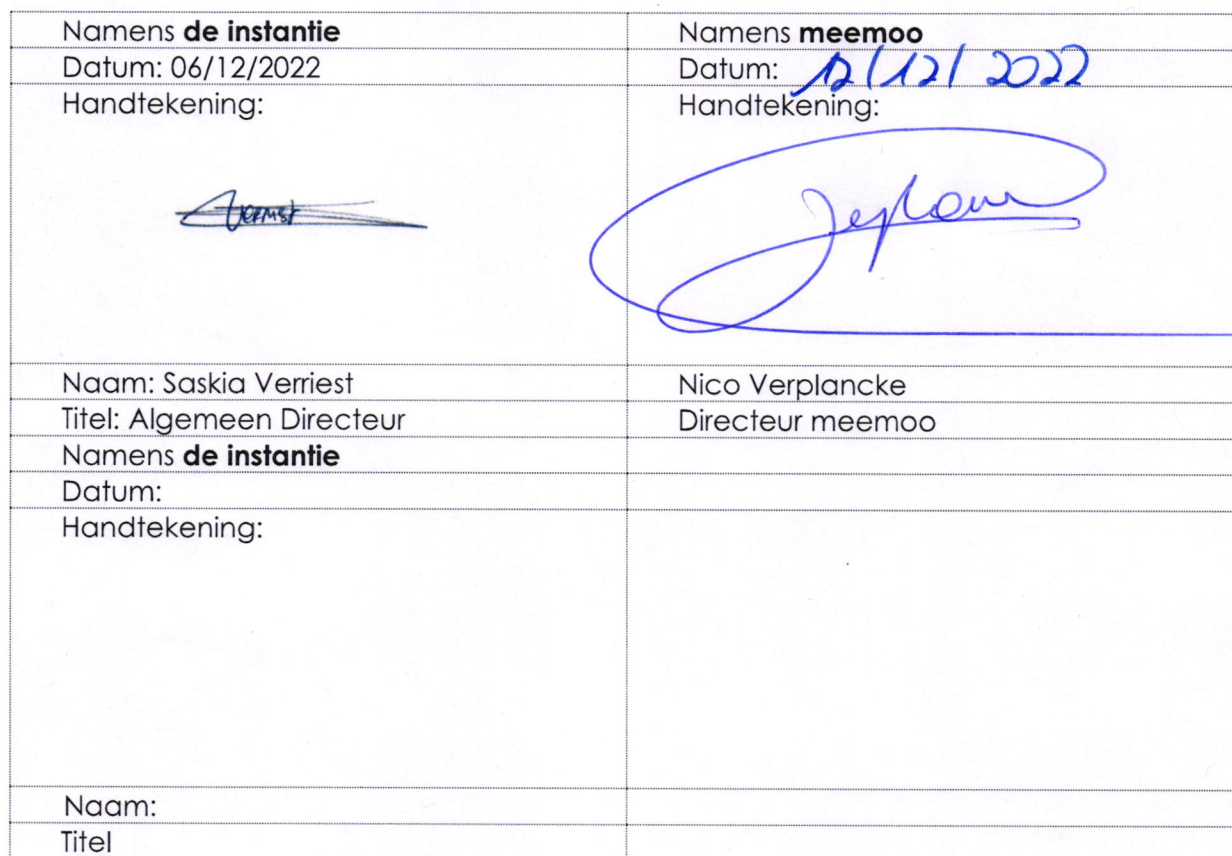 Namens de instantie
Namens meemoo
Datum: 06/12/2022
Datum: 12/12/2022
Handtekening:
Handtekening:
Verriest
Naam: Saskia Verriest
Nico Verplancke
Titel: Algemeen Directeur
Directeur meemoo
Namens de instantie
Datum:
Handtekening:
Naam:
Titel